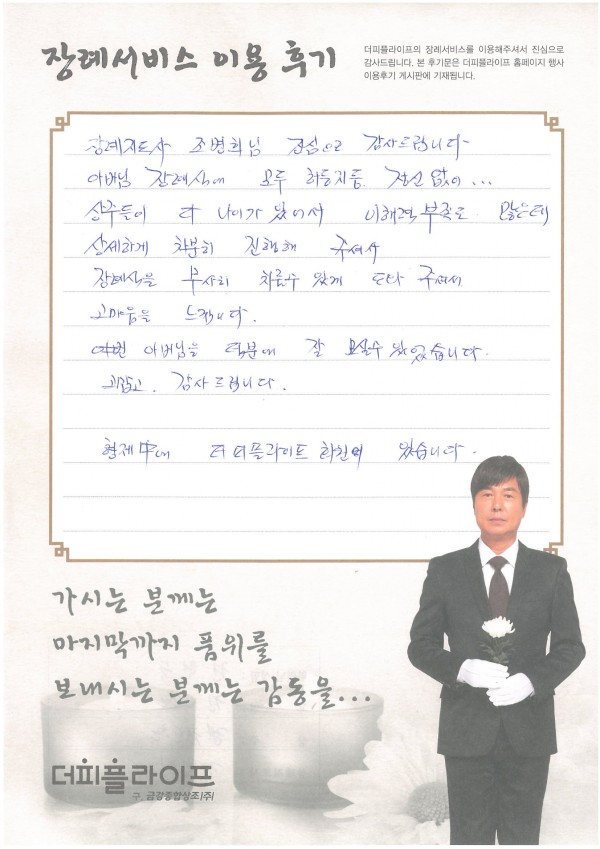 장례서비스 이용 후기
더피플라이프의 장례서비스를 이용해주셔서 진심으로
감사드립니다. 본 후기문은 더피플라이프 홈페이지 행사
이용후기 게시판에 기재됩니다.
장례지도사 조변희님 진심으로 감사드립니다
아버님 장례식에 모두 허둥지둥 정신 없이...
상주들이 다 나이가 있어서 이해력 부족도 많은데
상세하게 차분히 진행해 주셔서
장례식을 무사히 치를수 있게 도와 주셔서
고마움을 느낍니다.
아버님을 덕분에 잘 모실수 있었습니다.
고맙고. 감사드립니다.
형제中에 더피플라이프 회원이 있습니다.
가시는 분께는
마지막까지 품위를
보내시는 분께는 감동을...
더피플라이프
구. 금강종합상조(주)